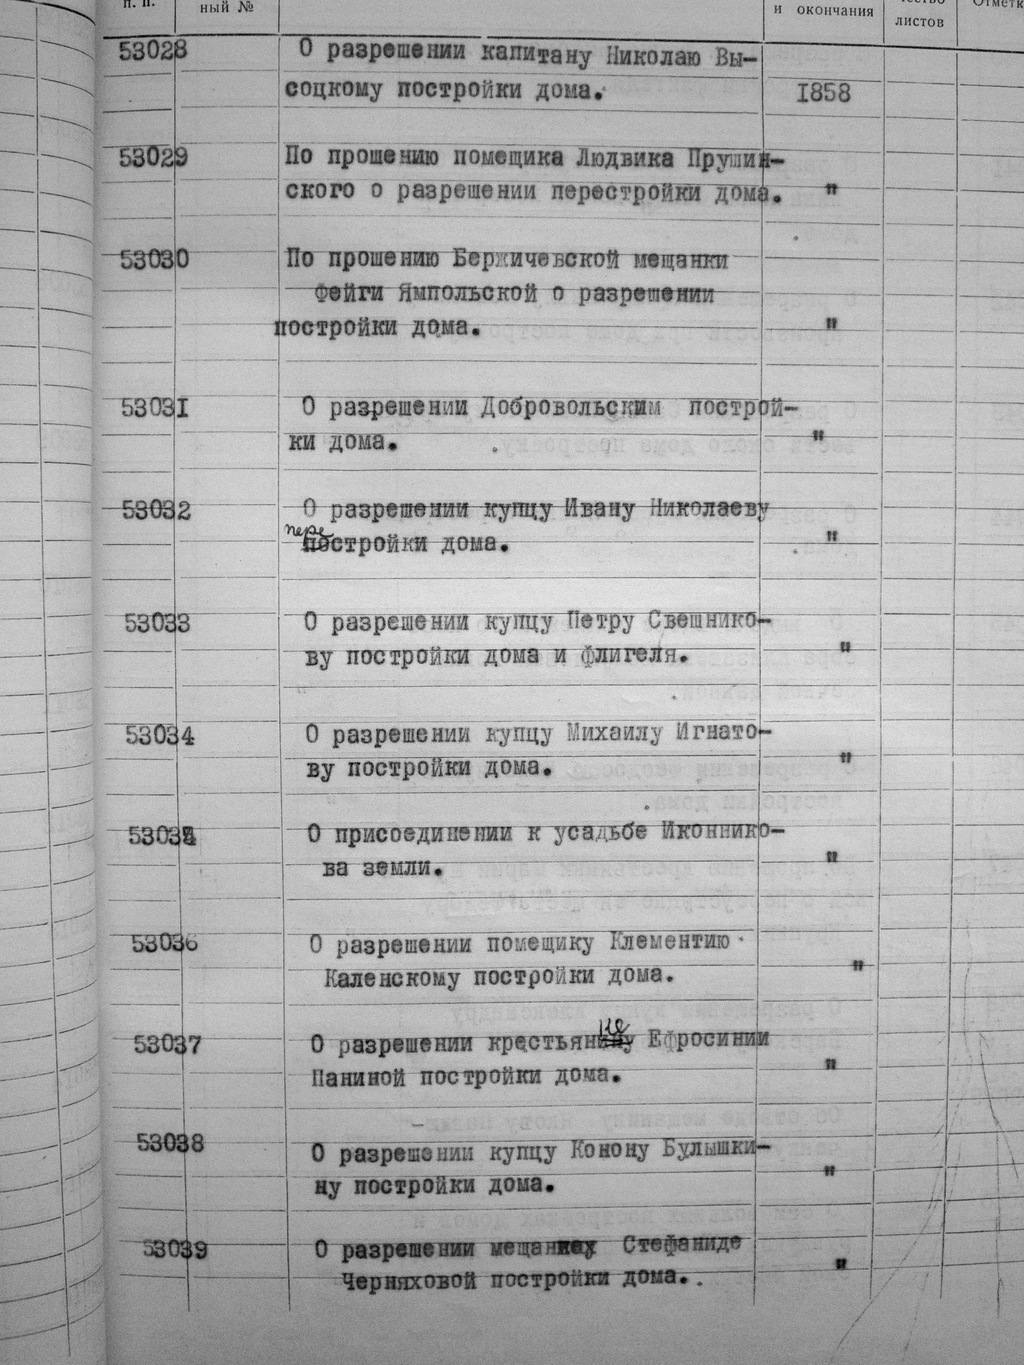 п. п.
ный №
и окончания
чество
листов
Отметк
53028 О разрешении капитану Николаю Вы-
соцкому постройки дома. 1858
53029 По прошению помещика Людвика Прушин-
ского о разрешении перестройки дома. "
53030 По прошению Бердичевской мещанки
Фейги Ямпольской о разрешении
постройки дома. "
53031 О разрешении Добровольским построй-
ки дома. "
53032 О разрешении купцу Ивану Николаеву
перестройки дома. "
53033 О разрешении купцу Петру Свешнико-
ву постройки дома и флигеля. "
53034 О разрешении купцу Михаилу Игнато-
ву постройки дома. "
53035 О присоединении к усадьбе Иконнико-
ва земли. "
53036 О разрешении помещику Клементию
Каленскому постройки дома. "
53037 О разрешении крестьянке Ефросинии
Паниной постройки дома. "
53038 О разрешении купцу Конону Булышки-
ну постройки дома. "
53039 О разрешении мещанке Стефаниде
Черняховой постройки дома. "